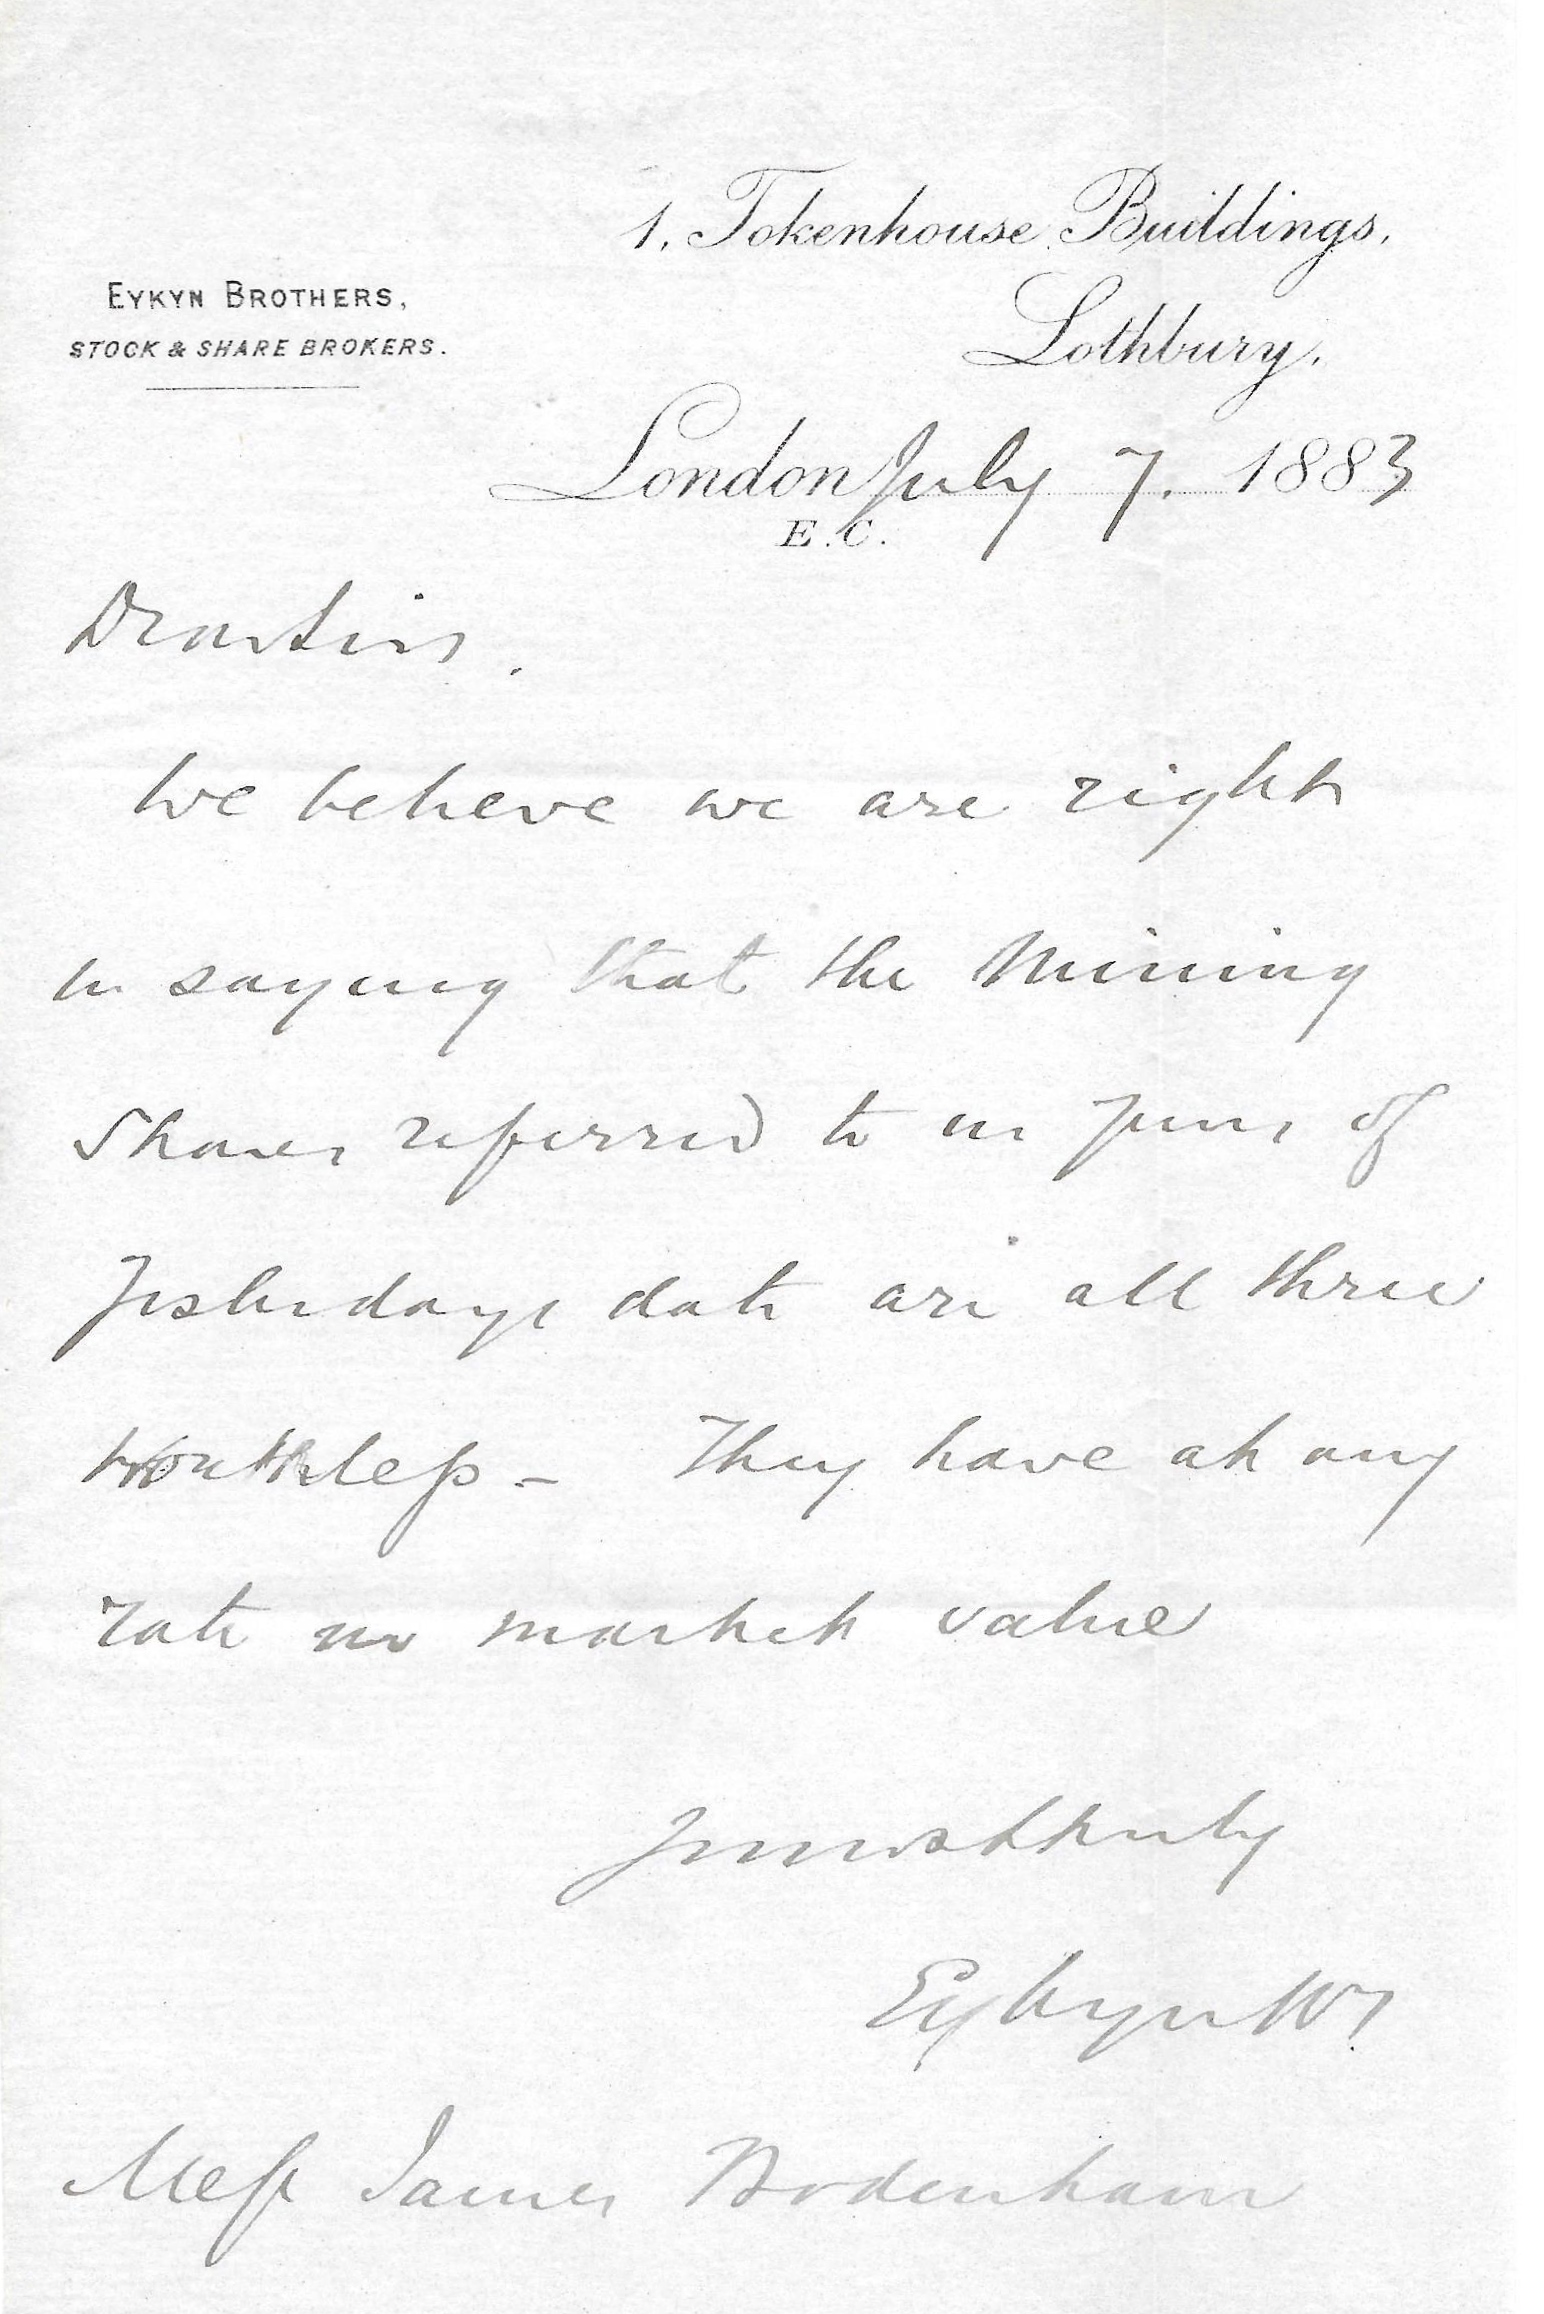 1, Tokenhouse Buildings,
Lothbury,
EYKYN BROTHERS,
STOCK & SHARE BROKERS.
London July 7. 1883
E.C.
Dear Sirs,
We believe we are right
in saying that the Mining
Shares referred to in yours of
yesterdays date are all three
worthless - They have at any
rate no market value
Yours truly
Eykyn Bros
Mess James Bodenham